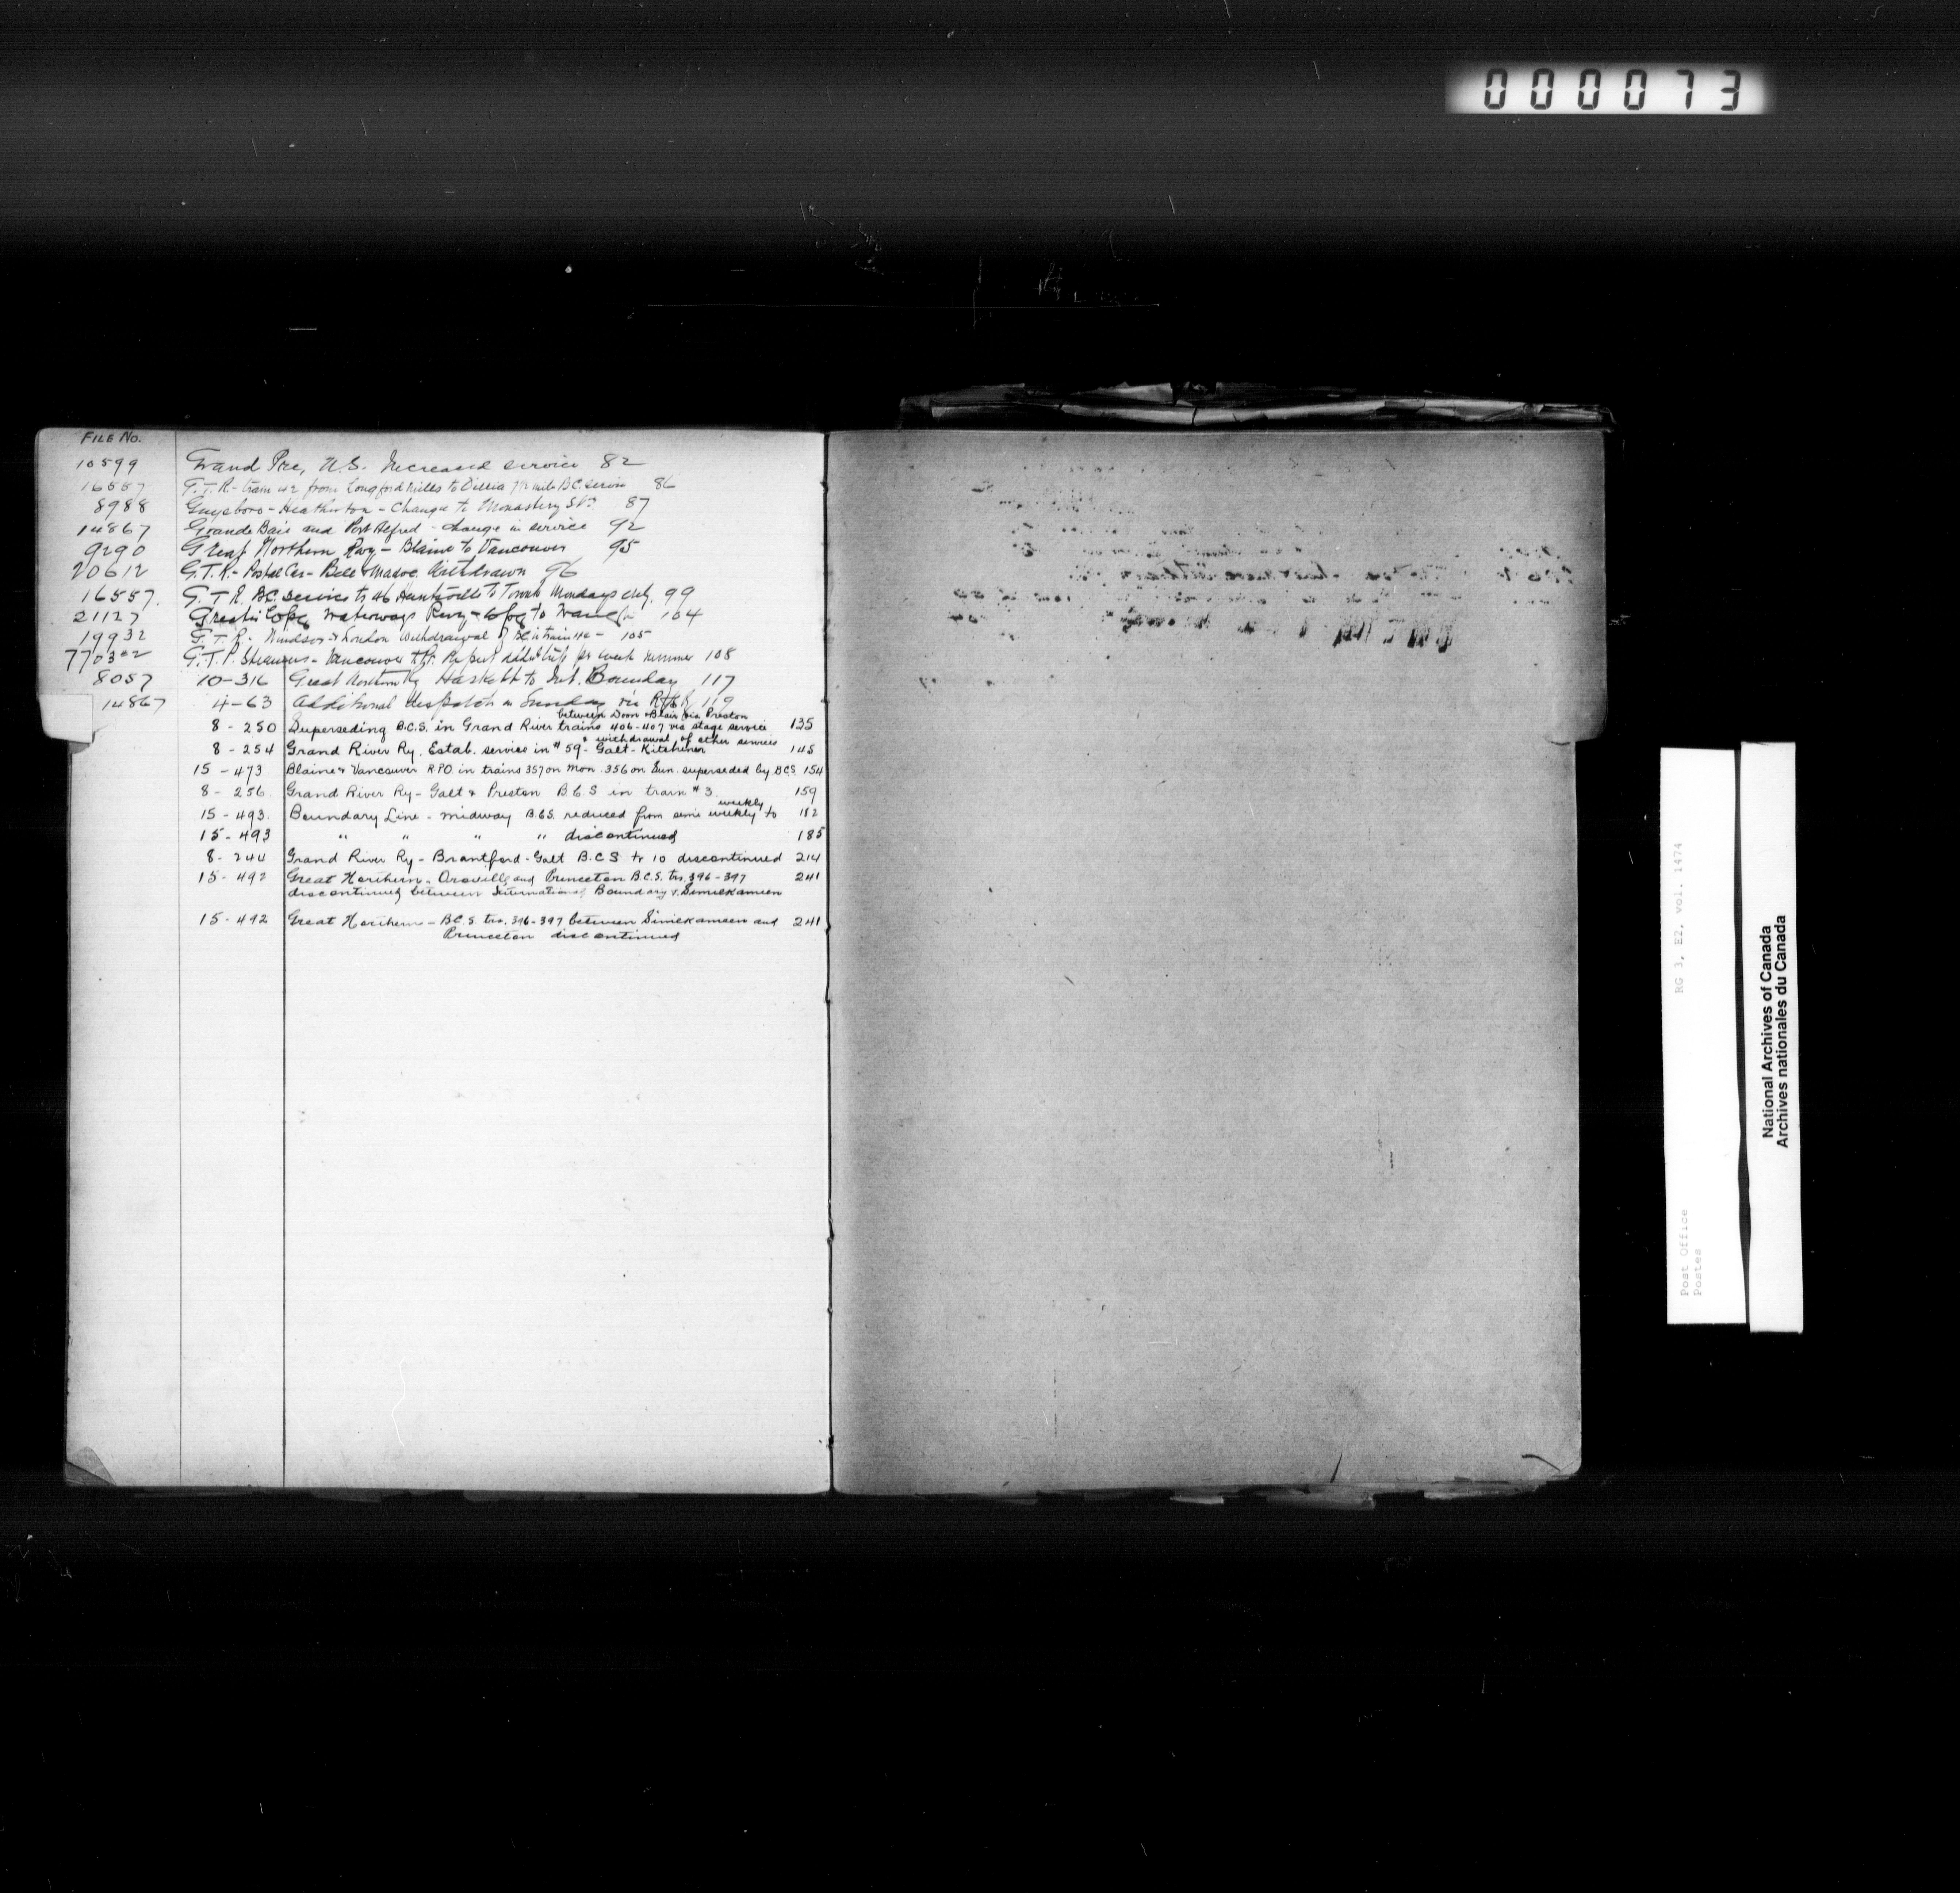 000073
FILE No.
10599 Grand Pre, N.S. Increased service 82
16557 G.T.R. - train 42 from Longford Mills to Orillia B.C. service 86
8988 Guysboro - Heatherton - Change to Monastery Stn 87
14867 Grande Baie and Port Alfred - change in service 92
9290 Great Northern Rwy - Blaine to Vancouver 95
20612 G.T.R. - Postal Car - Bell & Madoc Withdrawn 96
16557. G.T.R. B.C. service tr 46 Huntsville to Toronto Mondays only. 99
21127 Greater Wpg Waterways Rwy - Wpg to 104
19932 G.T.R. - Windsor & London Withdrawal of B.C. in train - 105
G.T.P. Steamers - Vancouver & Pr. Rupert addl trip per week summer 108
8057 10-316 Great Northern Ry Haskett to Int. Boundary 117
14867 4-63 Additional despatch on Sunday 119
between Doon & Blair via Preston
8-250 Superseding B.C.S. in Grand River trains 406-407 via stage service 135
& withdrawal of other services
8-254 Grand River Ry. Estab. service in #59 - Galt - Kitchener 145
15-473 Blaine & Vancouver R.P.O. in trains 357 on Mon. 356 on Sun. superseded by B.C.S. 154
8-256. Grand River Ry - Galt & Preston B.C.S in train #3. 159
weekly
15-493. Boundary Line - midway B.C.S. reduced from semi weekly to 182
15-493 " " " " discontinued 185
8-244 Grand River Ry - Brantford - Galt B.C.S tr 10 discontinued 214
15-492 Great Northern - Oroville and Princeton B.C.S. trs. 396-397 241
discontinued between International Boundary & Similkameen
15-492 Great Northern - B.C.S. trs. 396-397 between Similkameen and 241
Princeton discontinued
Post Office RG 3, E2, vol. 1474
Postes
National Archives of Canada
Archives nationales du Canada